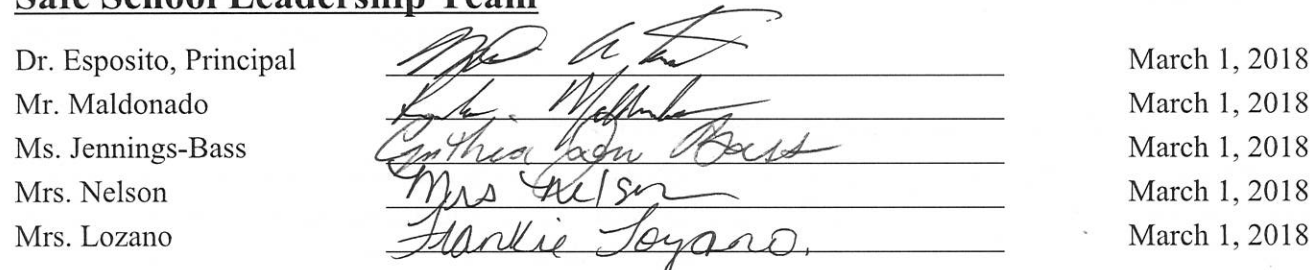 Safe School Leadership Team
Dr. Esposito, Principal March 1, 2018
Mr. Maldonado March 1, 2018
Ms. Jennings-Bass Cynthia Bass March 1, 2018
Mrs. Nelson Mrs Nelson March 1, 2018
Mrs. Lozano Frankie Lozano. March 1, 2018